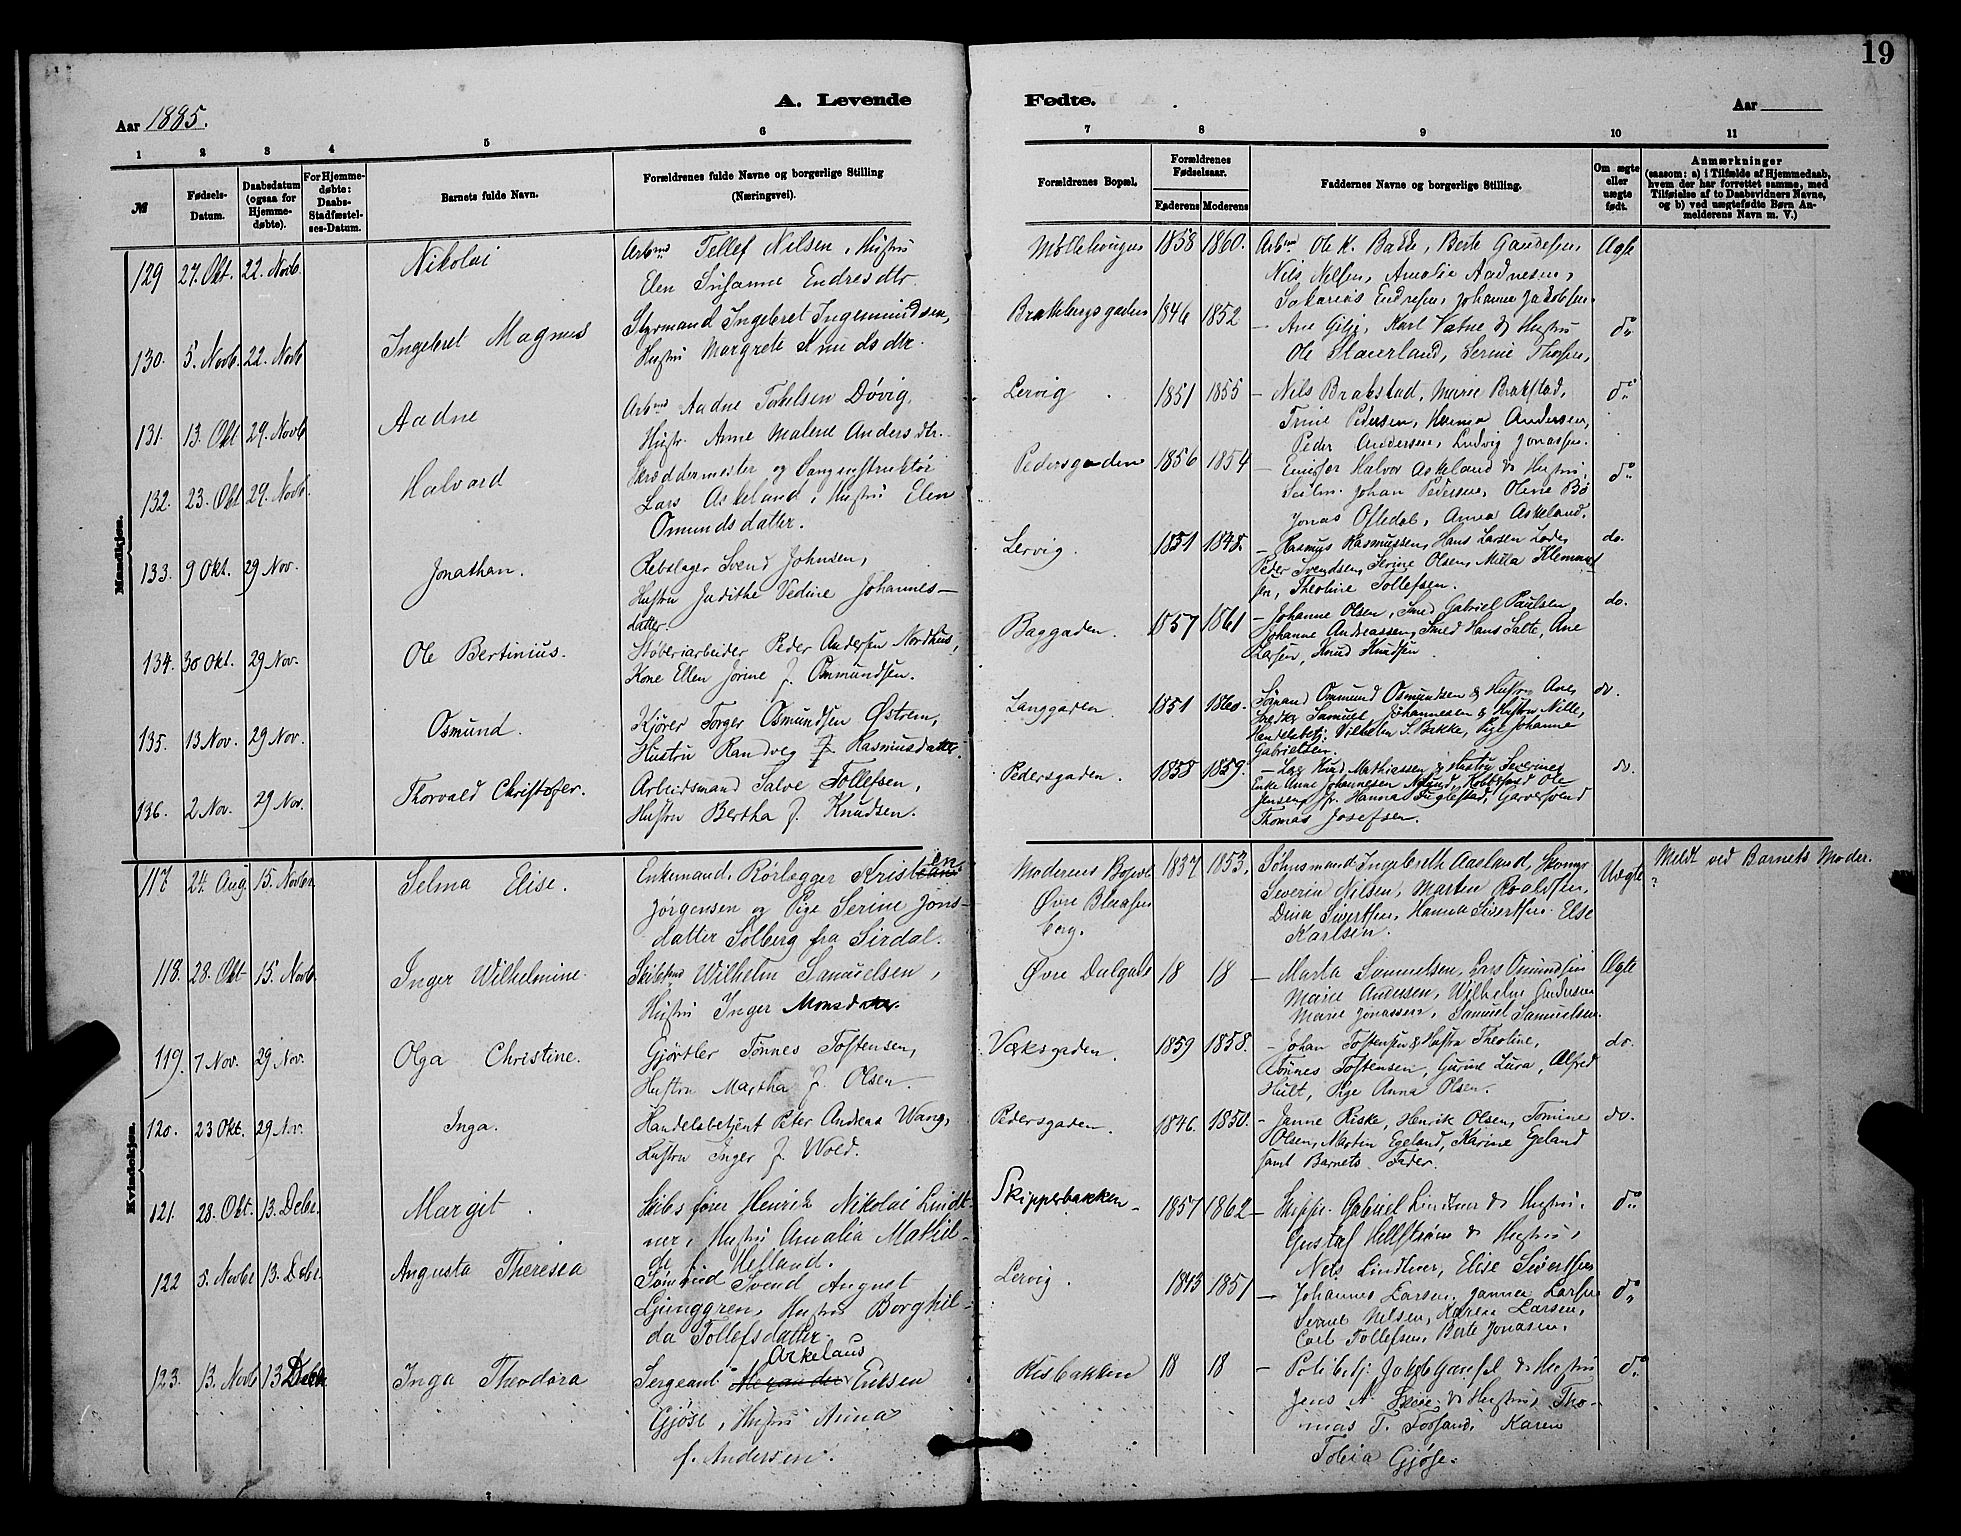 19
A. Levende Fødte.
Aar 1885.
Aar
1 2 3 4 5 6 7 8 9 10 11
№
Fødsels-Datum.
Daabsdatum (ogsaa for Hjemme-døbte).
For Hjemme-døbte: Daabs-Stadfæstel-ses-Datum.
Barnets fulde Navn.
Forældrenes fulde Navne og borgerlige Stilling (Næringsvei).
Forældrenes Bopæl.
Forældrenes Fødselsaar.
Faderens Moderens
Faddernes Navne og borgerlige Stilling.
Om ægte eller uægte født.
Anmærkninger
(saasom: a) i Tilfælde af Hjemmedaab, hvem der har forrettet samme, med Tilføielse af to Daabsvidners Navne, og b) ved uægtefødte Børn An-melderens Navn m. V.)
Mandkjøn.
129 27. Okt. 22. Novb. Nikolai
Arbmd Tellef Nilsen, Hustru
Elen Susanne Endresdtr.
1858 1860. Arbmd Ole K. Bakke, Berte Gaudesen,
Nils Nelsen, Amalie Aadnesen,
Sakarias Endresen, Johanne Jakobsen
Ægte
130. 5. Novb. 22. Novb Ingebret Magnus
Styrmand Ingebret Ingemundsen,
Hustru Margrete Knudsdtr.
1846 1852 — Ane Gilje, Karl Vatne & Hustru
Ole Stauerland, Serine Thorsen,
do
131. 13. Okt 29. Novb Aadne
Arbmd Aadne Torkelsen Døvig,
Hustr. Anne Malene Andersdtr.
Lervig 1851 1855 — Nils Brakstad, Marie Brakstad,
Trine Pedersen, Hanna Andersen,
Peder Andersen, Ludvig Jonassen.
do
132. 23. Okt 29. Novb. Halvard
Skræddermester og Sanginstruktør
Lars Askeland, Hustru Elen
Omundsdatter.
Pedersgaden 1856 1854 — Halvor Askeland & Hustru,
Johan Pedersen, Oline Bø
Jonas Oftedal, Anna Askeland.
do
133. 9 Okt. 29 Nov. Jonathan.
Rebslager Svend Johnsen,
Hustru Judithe Vedine Johannes-
datter.
Lervig. 1851 1848. — Rasmus Rasmussen, Hans Larsen Lode,
Peder Svendsen, Serine Olsen, Milla Klemmet
sen, Theoline Tollefsen.
do.
134. 30 Okt. 29 Nov. Ole Bertinius.
Støberiarbeider Peder Andersen Nordhus,
Kone Ellen Jorine f. Ommundsen.
Baggaden. 1857 1861 — Johanne Olsen, Smed Gabriel Paulsen,
Johanne Andreassen, Smed Hans Salte, Ane
Larsen, Knud Knudsen
do.
135. 13 Nov. 29 Nov. Osmund.
Kjører Torger Osmundsen Østrem,
Hustru Randveg f. Rasmusdatter.
Langgaden. 1851 1860. Ommund Osmundsen & Hustru Ane,
Samuel Johannesen & Hustru Nille,
Handelsbetj. Vilhelm S. Bekke, Pige Johanne
Gabrielsen.
do.
136. 2 Nov. 29 Nov. Thorvald Christofer.
Arbeidsmand Salve Tollefsen,
Hustru Bertha f. Knudsen.
Pedersgaden. 1858 1859. — Knud Mathiassen & Hustru Severine,
Enke Anne Johannesen Ole
Jensen, Hanna Fuglestad, Garversvend
Thomas Josefsen.
do.
Kvindekjøn.
117 24. Aug 15. Novbr Selma Elise.
Enkemand, Rørlægger Kristen
Jørgensen og Pige Serine Jons-
datter Solberg fra Sirdal.
Moderens Bopæl
Øvre Blaasen
berg.
1837 1853. Ingebreth Aasland,
Severin Nilsen, Martin Roaldsen,
Dina Sivertsen, Hanna Sivertsen, Else
Karlsen.
Uægte
Meldt ved Barnets Moder.
118. 28. Okt 15. Novb. Inger Wilhelmine.
Wilhelm Samuelsen,
Hustru Inger Monsdatter.
Øvre Dalgade 18 18 — Marta Samuelsen, Lars Osmundsen
Marie Andersen, Wilhelm Andersen
Marie Jonassen, Samuel Samuelsen.
Ægte
119. 7 Nov. 29 Nov. Olga Christine.
Gjørtler Tønnes Toftensen,
Hustru Martha f. Olsen.
Væksgaden. 1859 1858. — Johan Toftensen & Hustru Theoline,
Tønnes Toftensen, Gurine Lura, Alfred
Hult, Pige Anna Olsen.
do.
120. 23 Okt. 29 Nov. Inga.
Handelsbetjent Peter Andreas Wang,
Hustru Inger f. Wold.
Pedersgaden. 1846. 1850. — Janne Riske, Henrik Olsen, Tomine
Olsen, Martin Egeland, Karine Egeland
samt Barnets Fader.
do.
121. 28. Okt. 13. Debr. Margit.
Skibsfører Henrik Nikolai Lindt-
ner, Hustru Amalia Mathil-
de f. Helland.
Skipperbakken 1857 1862 — Skippr. Gabriel Lindtner & Hustru,
Gustaf Hellstrøm & Hustru,
Nels Lindtner, Elise Sivertsen
do
122 5. Novbr 13. Debr. Augusta Theresia
Svend August
Ljunggren, Hustru Borghil-
da Tollefsdatter.
Lervig. 1843 1851 — Johannes Larsen, Janna Larsen
Nilsen, Karen Larsen,
Carl Tollefsen, Berte Jonasen.
do
123. 13. Novb 13 Debr Inga Theodora
Arkelaus
Sergeant Alexander Eriksen
Gjøse, Hustru Anna
f. Andersen.
Risbakken 18 18 — Politibetj. Jakob Gausel & Hustru
Jens A. & Hustru, Tho-
mas T. Fossand, Karen
Tobia Gjøse.
do